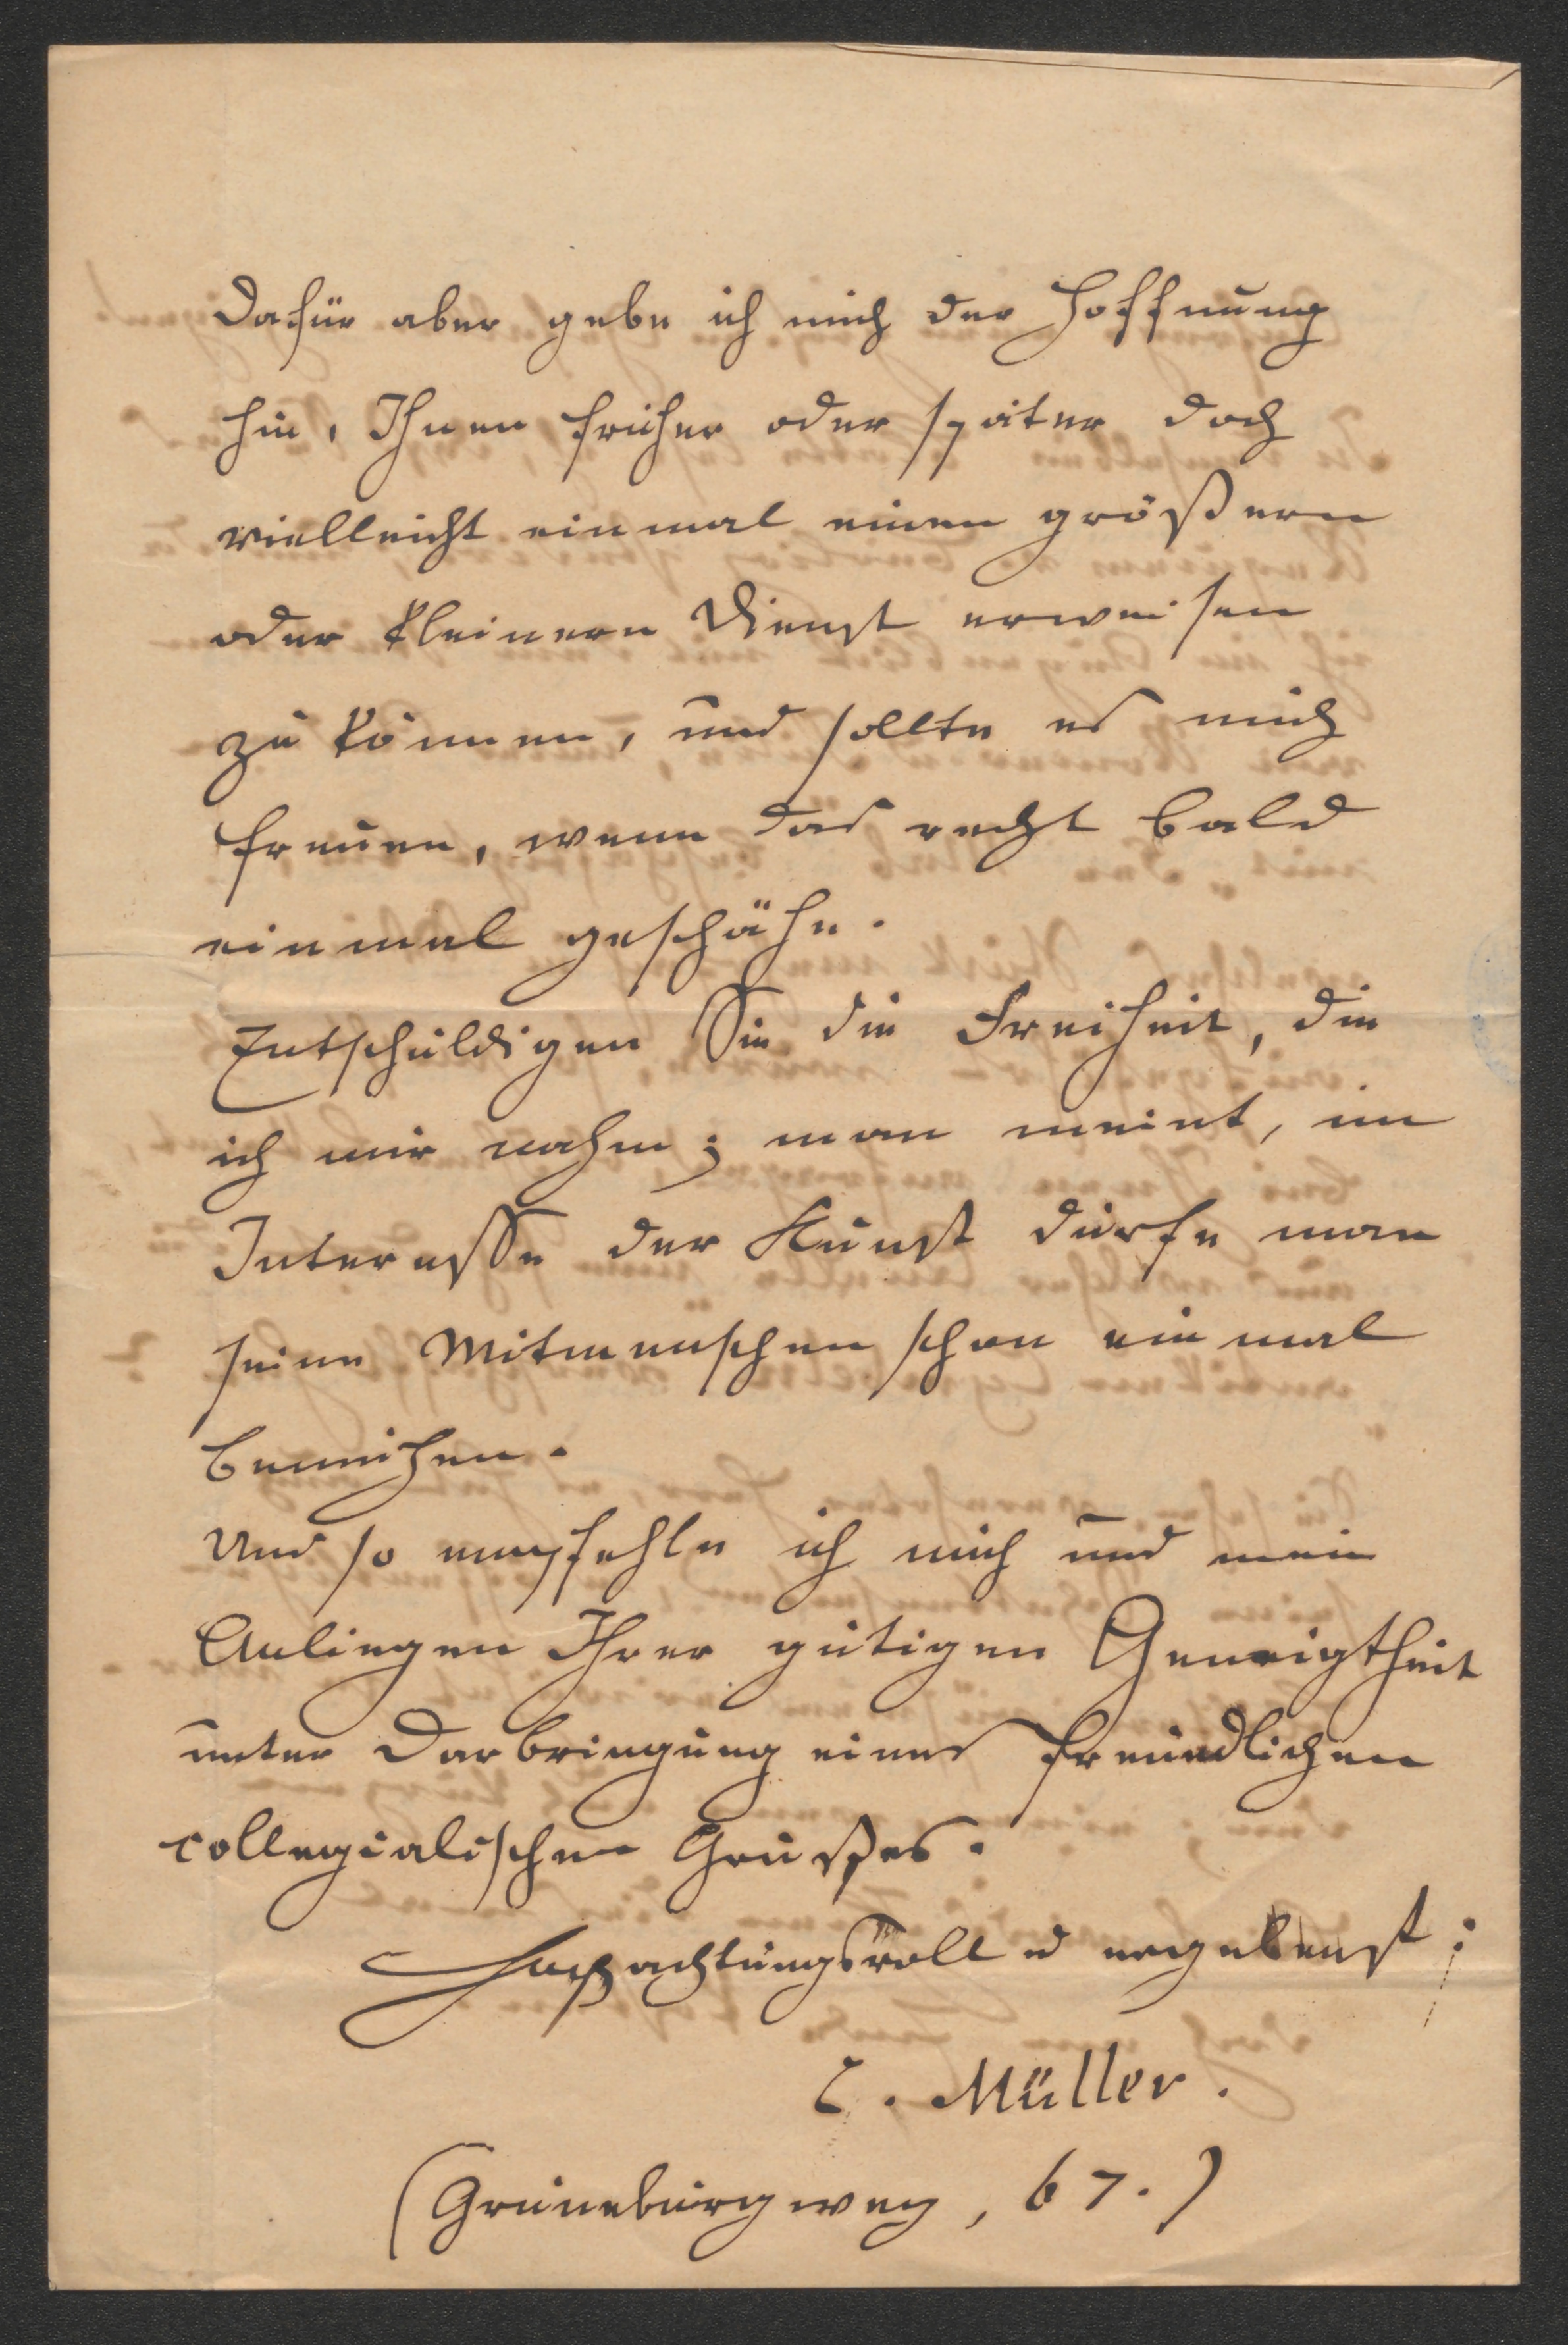 Dafür aber gebe ich mich der Hoffnung
hin, Ihnen früher oder später doch
vielleicht einmal einen größern
oder kleinern Dienst erweisen
zu können, und sollte es mich
freuen, wenn das recht bald
einmal geschähe.
Entschuldigen Sie die Freiheit, die
ich mir nahm; man meint, im
Interesse der Kunst dürfe man
seine Mitmenschen schon einmal
bemühen.
Und so empfehle ich mich und mein
Anliegen Ihrer gütigen Geneigtheit
unter Darbringung eines freundlichen
collegialischen Grußes.
Hochachtungsvoll u ergebenst;
C. Müller.
(Grüneburgweg, 67.)